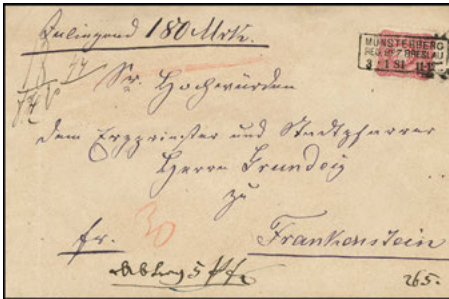 180 Mrk.
MÜNSTERBERG
REG. BEZ. BRESLAU
3 1 81 11-12
Sr. Hochwürden
dem Erzpriester und Stadtpfarrer
Herrn Grundey
zu
30
fr.
Frankenstein
265.